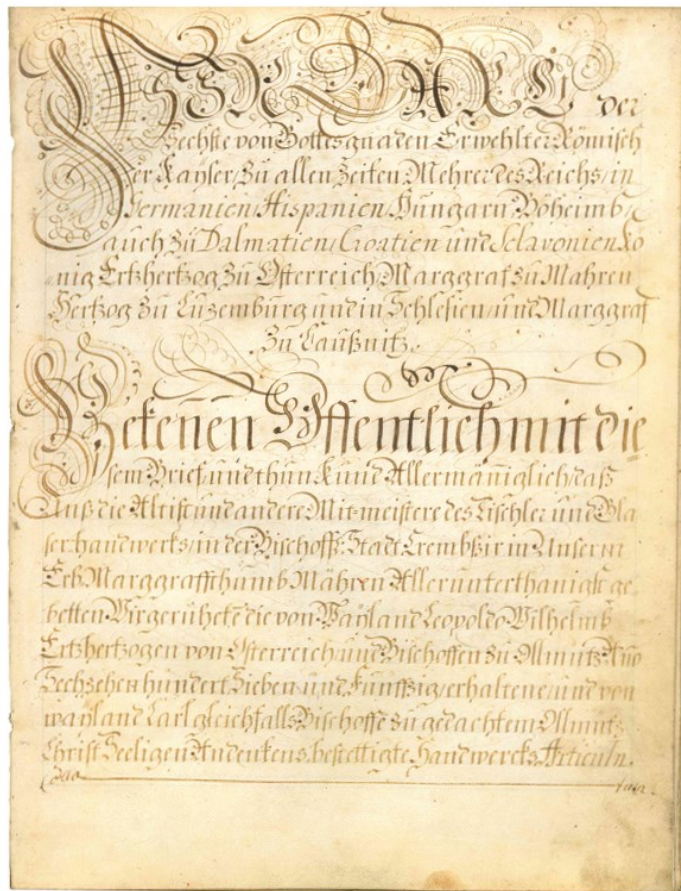 WIR CARL der
Sechste von Gottes gnaden Erwehlter Römisch
er Kayser, Zu allen Zeiten Mehrer des Reichs, in
Germanien, Hispanien, Hungarn, Böheimb,
auch Zu Dalmatien, Croatien und Sclavonien Kö
nig Ertzhertzog Zu Osterreich, Marggraf zu Mähren
Hertzog Zu Luzemburg und in Schlesien, und Marggraf
Zu Laußnitz.
Bekennen Offentlich mit die
sem Brief, und thun Kund Allermäniglich, daß
Unß die Altist und andere Mit-meistere des Tischler und Gla
ser handwerks, in der Bischoffs: Stadt Crembsir in Unserm
Erb Marggraffthumb Mähren Allerunterthänigst ge
betten Wir geruhetē die von Wayland Leopoldo Wilhelmb
Ertzhertzogen von Osterreich, und Bischoffen zu Olmütz Año
Sechzehen hundert Sieben und Funffzig, erhaltene, und von
wayland Carl gleichfalls Bischoffe zu gedachtem Olmütz
Christ Seeligen Andenkens, bestettigte Handwercks Articuln.